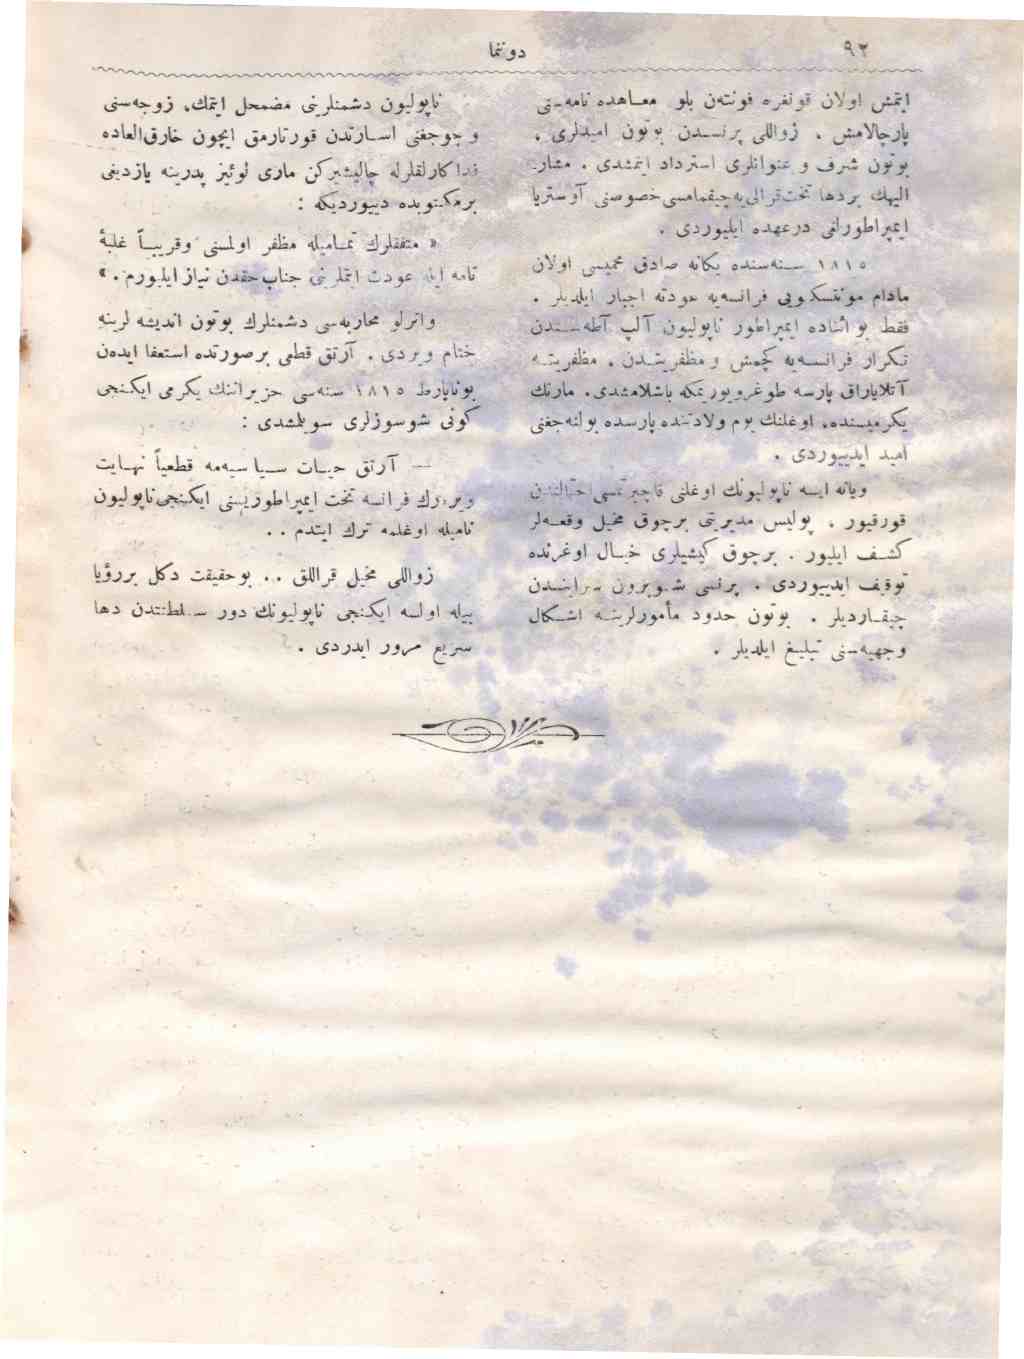 ٩٢
دوننما
ايتمش اولان قونفره فونتەن بلو معاهده نامه‌سنى
پارچالامش ، زواللى پرنسدن بوتون اميدلرى ،
بوتون شرف و عنوانلرى استرداد ايتمشدى . مشار
اليهك بردها تخت قرالى‌يه چيقمامسى خصوصنى آوستريا
ايمپراطورلغى درعهده ايليوردى .
١٨١٥ سنه‌سنده يكانه صادق محبيسى اولان
مادام مونتسكيويى فرانسه‌يه عودته اجبار ايلديلر .
فقط بو اثناده ايمپراطور ناپوليون آلب آطه‌سندن
تكرار فرانسه‌يه كچمش و مظفريتدن ، مظفريته
آتلاياراق پارسه طوغرو يوريمكه باشلامشدى. مارتك
يكرميسنده، اوغلنك يوم ولادتنده پارسده بولنه‌جغنى
اميد ايدييوردى .
ويانه ايسه ناپوليونك اوغلنى قاچيرتمسى احتمالندن
قورقيور ، پوليس مديريتى برچوق مخيل وقعه‌لر
كشف ايليور . برچوق كيشيلرى خيال اوغرنده
توقيف ايدييوردى . پرنسى شونبرون سراينىدن
چيقارديلر . بوتون حدود مأمورلرينه اشكال
وجهيه‌سنى تبليغ ايلديلر .
ناپوليون دشمنلرينى مضمحل ايتمك، زوجه‌سنى
و چوجغنى اسارتدن قورتارمق ايچون خارق‌العاده
فداكارلقلرله چاليشيركن مارى لوئيز پدرينه يازديغى
برمكتوبده دييورديكه :
« متفقلرك تماميله مظفر اولمسنى وقريباً غلبهٔ
تامه ايله عودت ايتملرينى جناب حقدن نياز ايليورم. »
واترلو محاربه‌سى دشمنلرك بوتون انديشه لرينه
ختام ويردى . آرتق قطعى برصورتده استعفا ايدەن
بوناپارط ١٨١٥ سنه‌سى حزيراننك يكرمى ايكنجى
كونى شوسوزلرى سويلشدى :
— آرتق حيات سياسيه‌مه قطعياً نهايت
ويره‌رك فرانسه تخت ايمپراطوريسنى ايكنجى ناپوليون
ناميله اوغلمه ترك ايتدم . .
زواللى مخيل قراللق . . بوحقيقت دكل بررؤيا
بيله اولسه ايكنجى ناپوليونك دور سلطنتندن دها
سريع مرور ايدردى .